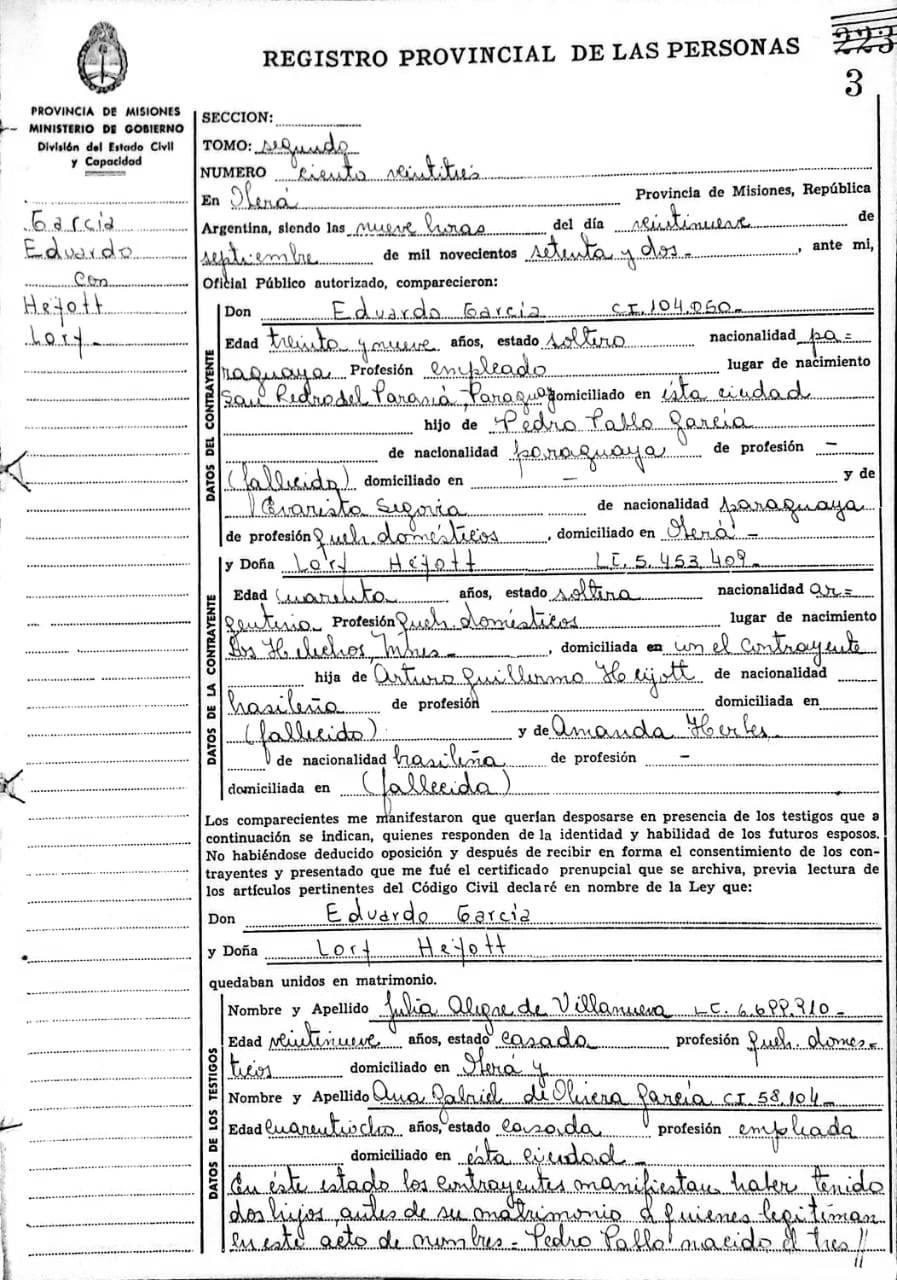 REGISTRO PROVINCIAL DE LAS PERSONAS
223
3
PROVINCIA DE MISIONES
MINISTERIO DE GOBIERNO
División del Estado Civil
y Capacidad
García
Eduardo
con
Heyott
Lory-
SECCION:
TOMO: segundo
NUMERO ciento veintitres
En Oberá Provincia de Misiones, República
Argentina, siendo las nueve horas del día veintinueve de
septiembre de mil novecientos setenta y dos.- , ante mi,
Oficial Público autorizado, comparecieron:
DATOS DEL CONTRAYENTE
Don Eduardo García CI. 104.050-
Edad treinta y nueve años, estado soltero nacionalidad pa=
raguaya Profesión empleado lugar de nacimiento
San Pedro del Paraná, Paraguay domiciliado en ésta ciudad
hijo de Pedro Pablo García
de nacionalidad paraguaya de profesión -
(fallecido) domiciliado en - y de
Evarista Segovia de nacionalidad paraguaya
de profesión queh. domésticos , domiciliado en Oberá -
DATOS DE LA CONTRAYENTE
y Doña Lory Heyott LC. 5.453.409
Edad cuarenta años, estado soltera nacionalidad ar=
gentina Profesión queh. domésticos lugar de nacimiento
Los Helechos, Mnes- , domiciliada en con el contrayente
hija de Arturo Guillermo Heyott de nacionalidad
brasileña de profesión domiciliada en
(fallecido) y de Amanda Herbes
de nacionalidad brasileña de profesión -
domiciliada en (fallecida)
Los comparecientes me manifestaron que querían desposarse en presencia de los testigos que a
continuación se indican, quienes responden de la identidad y habilidad de los futuros esposos.
No habiéndose deducido oposición y después de recibir en forma el consentimiento de los con-
trayentes y presentado que me fué el certificado prenupcial que se archiva, previa lectura de
los artículos pertinentes del Código Civil declaré en nombre de la Ley que:
Don Eduardo García
y Doña Lory Heyott
quedaban unidos en matrimonio.
DATOS DE LOS TESTIGOS
Nombre y Apellido Julia Alegre de Villanueva LC. 6.699.910-
Edad veintinueve años, estado casada profesión queh. domes-
ticos domiciliado en Oberá y
Nombre y Apellido Ana Gabriel de Olivera García CI 58.104-
Edad cuarentiocho años, estado casada profesión empleada
domiciliado en ésta ciudad -
En éste estado los contrayentes manifiestan haber tenido
dos hijos antes de su matrimonio a quienes legitiman
en este acto de nombres - Pedro Pablo nacido el tres//